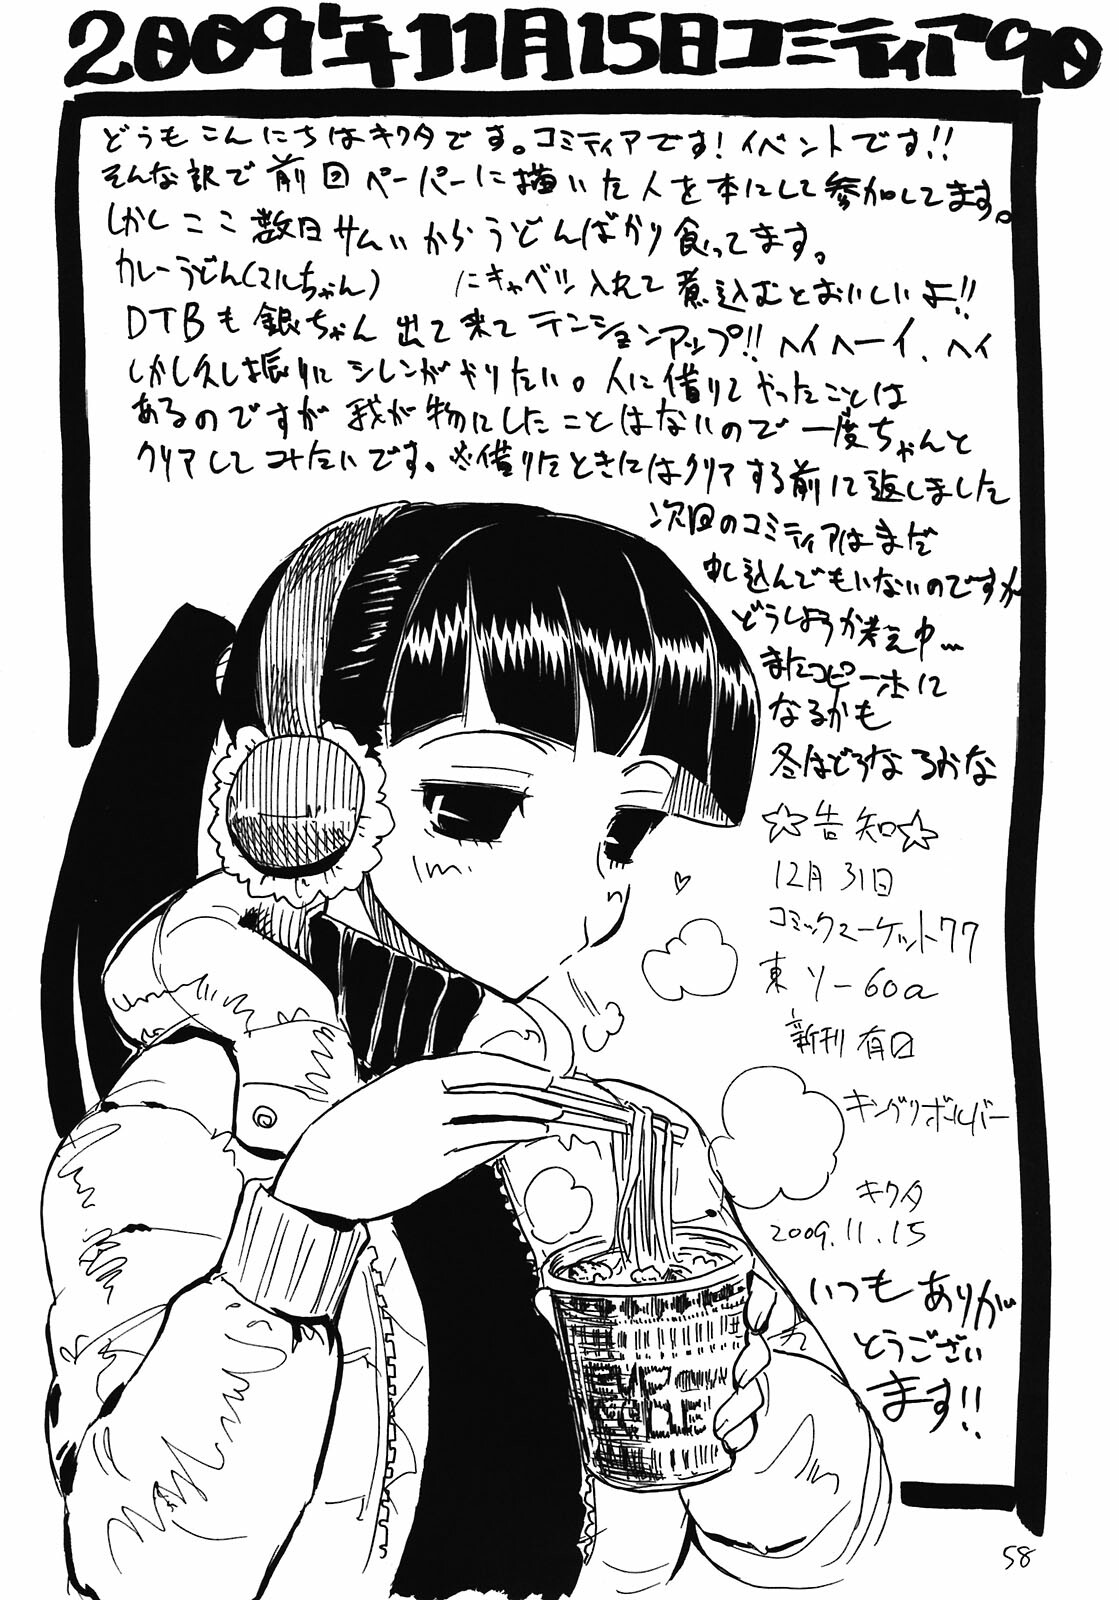 2009年11月15日コミティア90
どうもこんにちはキクタです。コミティアです!イベントです!!
そんな訳で前回ペーパーに描いた人を本にして参加してます。
しかしここ数日サムいからうどんばかり食ってます。
カレーうどん(マルちゃん) にキャベツ入れて煮込むとおいしいよ!!
DTBも銀ちゃん出て来てテンションアップ!!ヘイヘーイ、ヘイ
しかし久し振りにシレンがやりたい。人に借りてやったことは
あるのですが我が物にしたことはないので一度ちゃんと
クリアしてみたいです。※借りたときにはクリアする前に返しました
次回のコミティアはまだ
申し込んでもいないのですが
どうしようか考え中…
またコピー本に
なるかも
冬はどうなるかな
☆告知☆
12月31日
コミックマーケット77
東ソ-60a
新刊有り
キングリボルバー
キクタ
2009.11.15
いつもありが
とうござい
ます!!
58